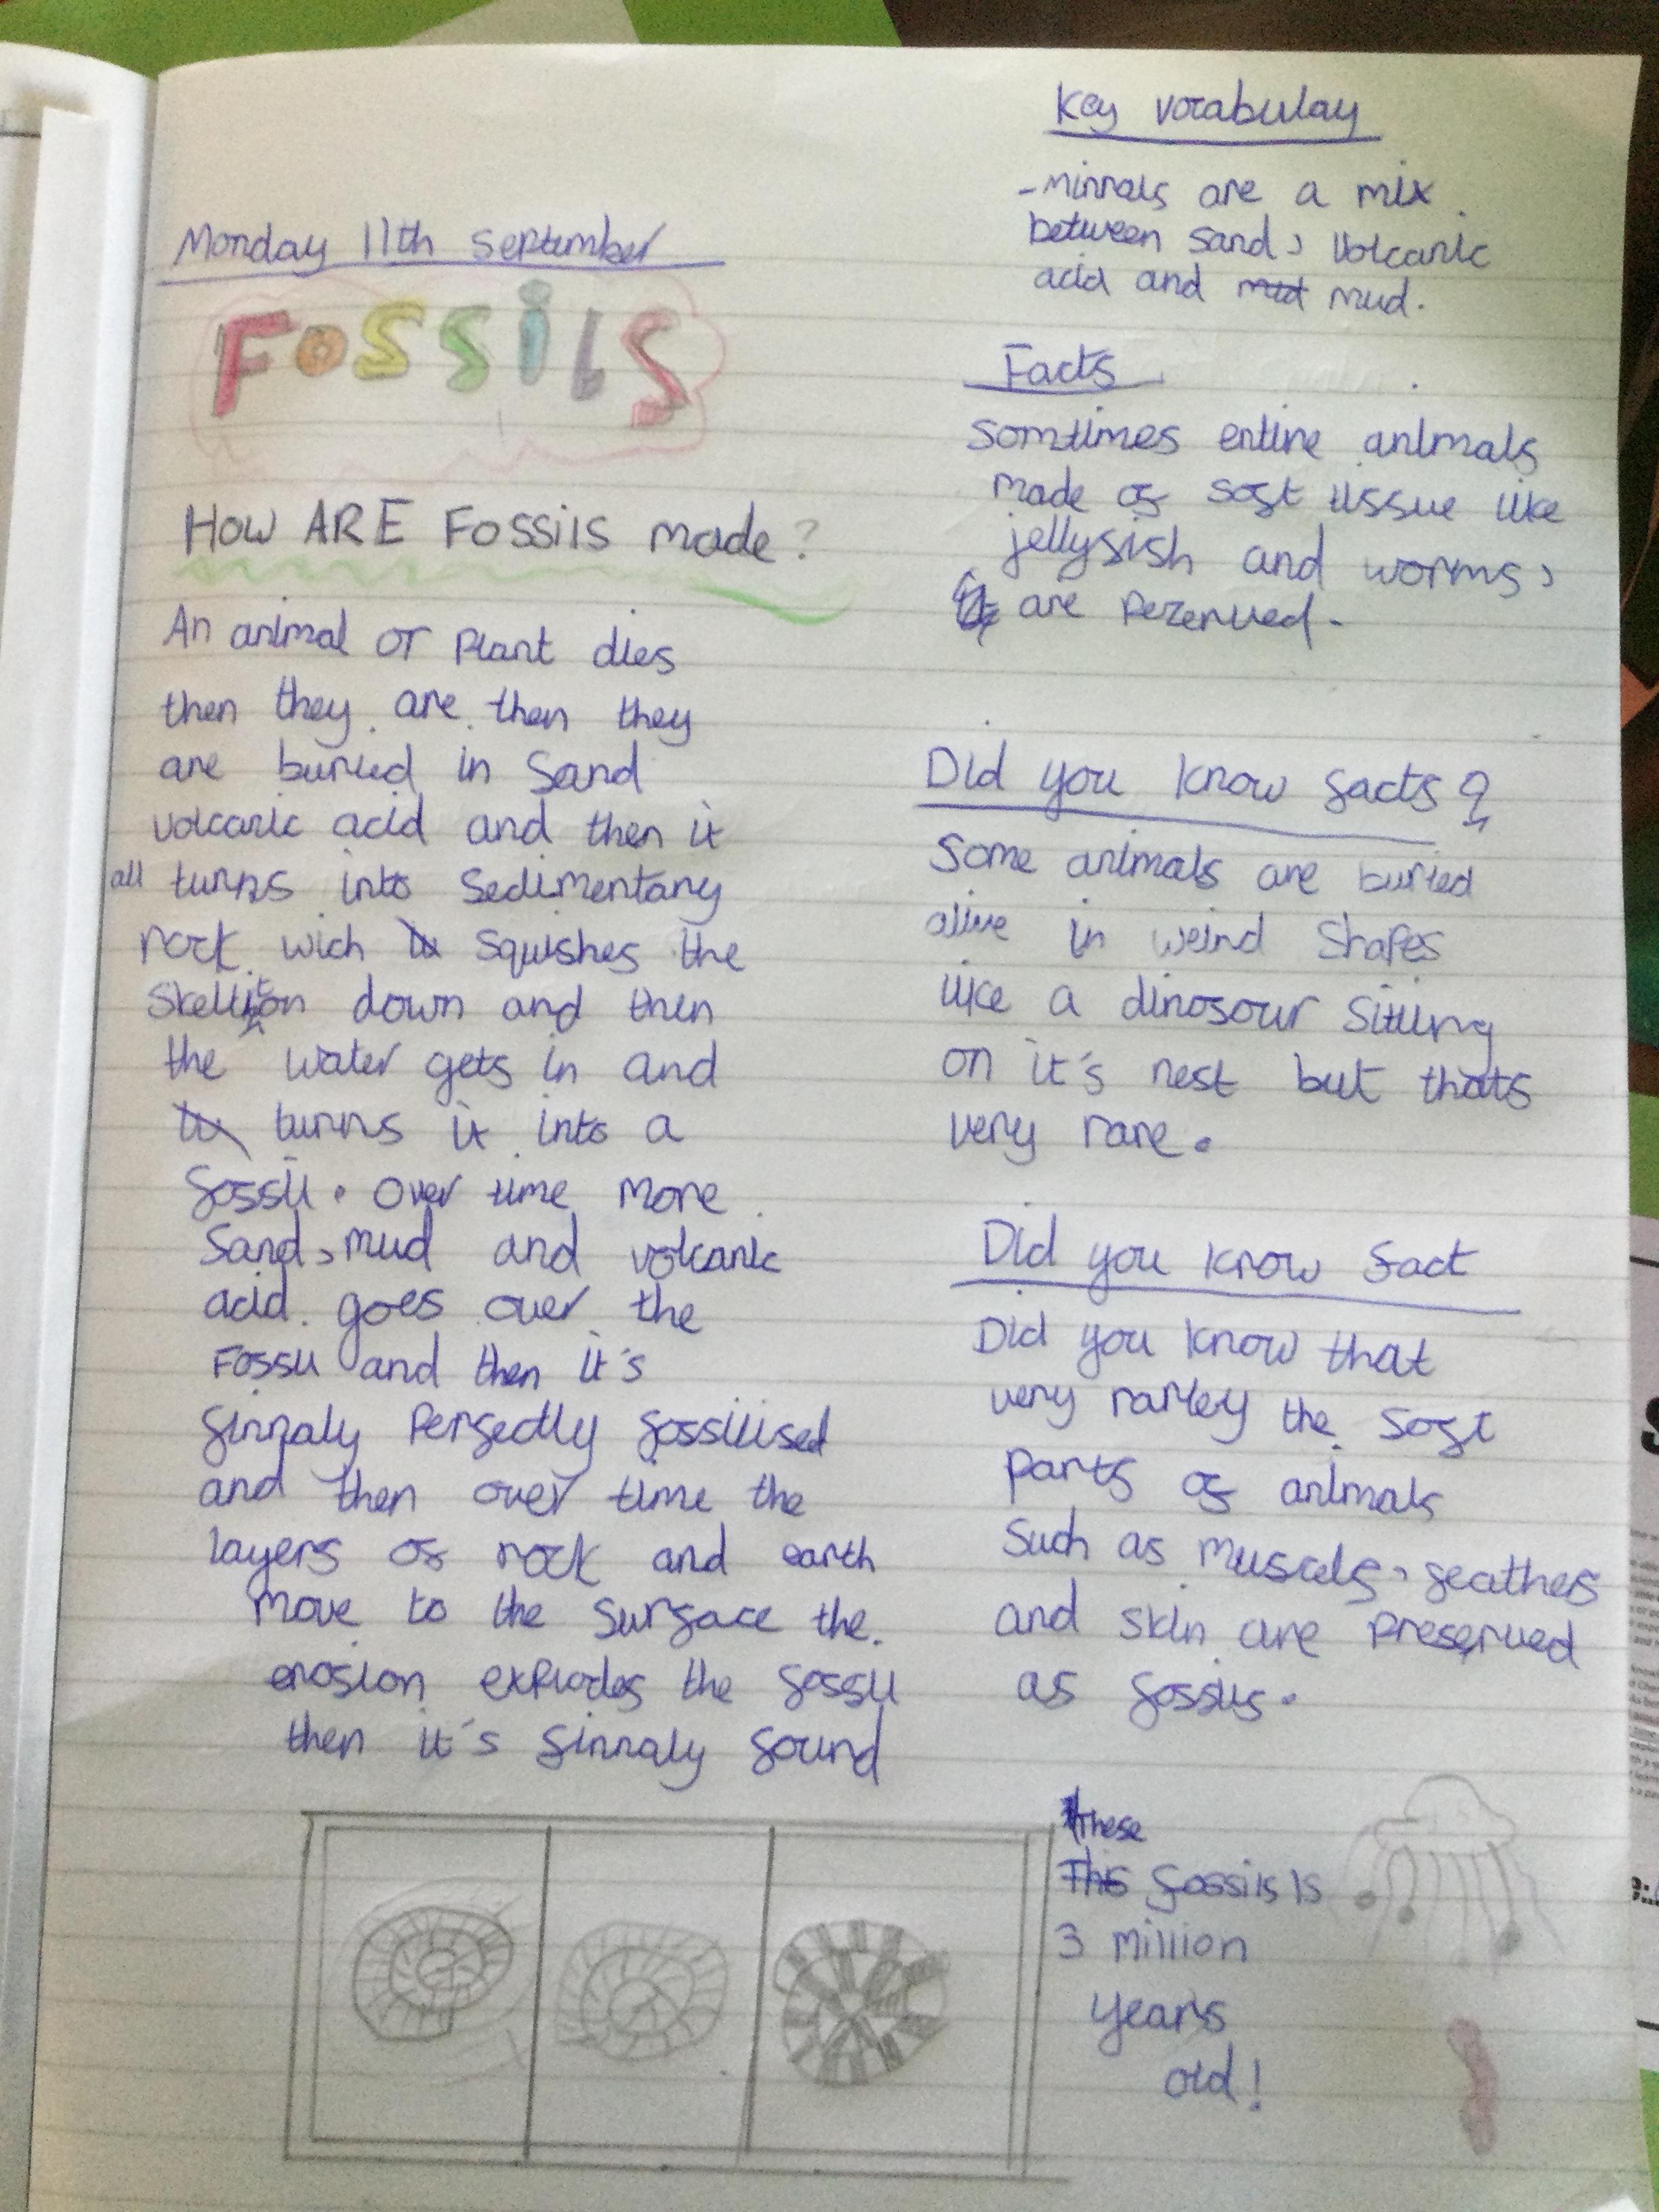 Monday 11th September
Fossils
How ARE Fossils made?
An animal or plant dies
then they are then they
are buried in sand
volcanic acid and then it
all turns into sedimentary
rock wich squishes the
skelliton down and then
the water gets in and
turns it into a
fossil. Over time more
sand, mud and volcanic
acid goes over the
Fossil and then it's
finnaly perfectly fossilised
and then over time the
layers of rock and earth
move to the surface the
erosion explodes the fossil
then it's finnaly found
Key vocabulay
- minrals are a mix
between sand, volcanic
acid and mud.
Facts
Somtimes entire animals
made of soft tissue like
jellyfish and worms,
are perzerved.
Did you know facts?
Some animals are buried
alive in weird shapes
like a dinosour sitting
on it's nest but thats
very rare.
Did you know fact
Did you know that
very rarley the soft
parts of animals
such as muscels, feathers
and skin are preserved
as fossils.
these
This fossils is
3 million
years
old!